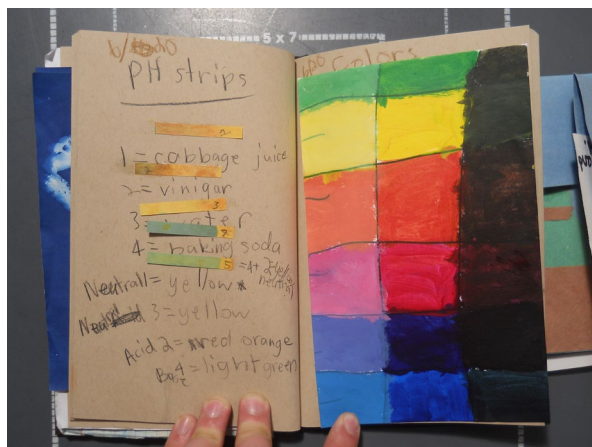 5 x 7
PH strips
Colors
1 = cabbage juice
2 = viniqar
3 = water
3
4 = baking soda
5
Neutrall = yellow
neutral
3 = yellow
Acid 2 = red orange
4 = light green